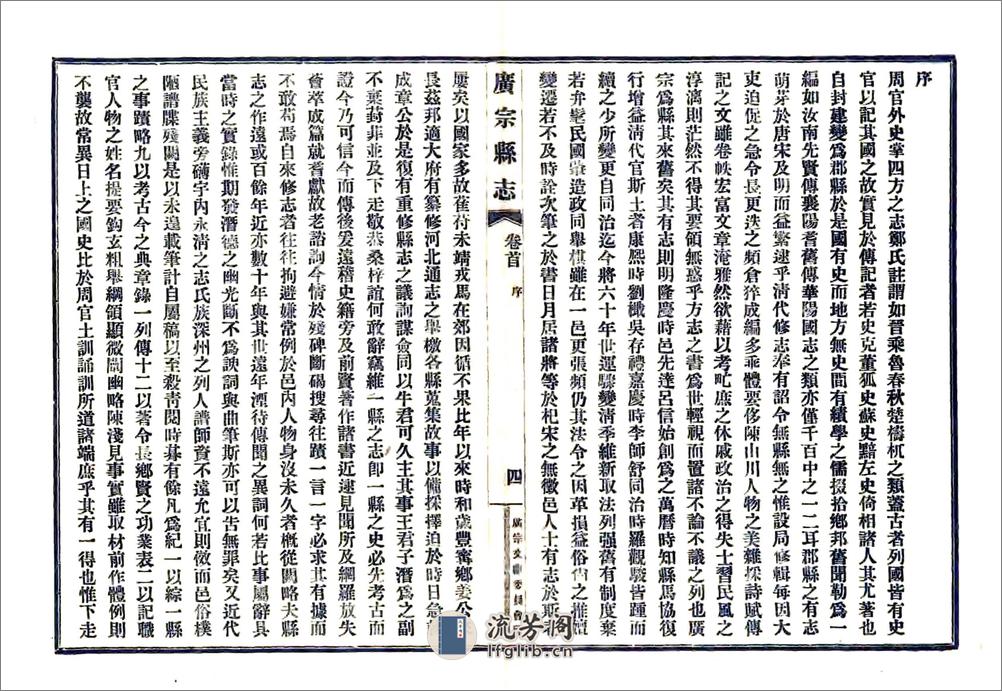 序
周官外史掌四方之志鄭氏註謂如晉乘魯春秋楚檮杌之類蓋古者列國皆有史
官以記其國之故實見於傳記者若史克董狐史蘇史黯左史倚相諸人其尤著也
自封建變爲郡縣於是國有史而地方無史間有績學之儒掇拾鄉邦舊聞勒爲一
編如汝南先賢傳襄陽耆舊傳華陽國志之類亦僅千百中之一二耳郡縣之有志
萌芽於唐宋及明而益繁逮乎清代修志奉有詔令無縣無之惟設局修輯每因大
吏迫促之急令長更迭之頻倉猝成編多乖體要侈陳山川人物之美雜採詩賦傳
記之文雖卷帙宏富文章淹雅然欲藉以考疪庶之休戚政治之得失士習民風之
淳漓則茫然不得其要領無惑乎方志之書爲世輕視而置諸不論不議之列也廣
宗爲縣其來舊矣其有志則明隆慶時邑先達呂信始創爲之萬曆時知縣馬協復
行增益清代官斯土者康熙時劉櫼吳存禮嘉慶時李師舒同治時羅觀駿皆踵而
續之少所變更自同治迄今將六十年世運驟變清季維新取法列强舊有制度棄
若弁髦民國肇造政同舉棋雖在一邑更張頻仍其法令之因革損益俗尙之推
變遷若不及時詮次筆之於書日月居諸將等於杞宋之無徵邑人士有志於斯
廣宗縣志
卷首
序
四
屢矣以國家多故萑苻未靖戎馬在郊因循不果比年以來時和歲豐甯鄉姜公
長茲邦適大府有纂修河北通志之舉檄各縣蒐集故事以備採擇迫於時日急
成章公於是復有重修縣志之議詢謀僉同以牛君可久主其事王君子潛爲之副
不棄葑菲並及下走敬恭桑梓誼何敢辭竊維一縣之志卽一縣之史必先考古而
證今乃可信今而傳後爰遠稽史籍旁及前賢著作諸書近逮見聞所及網羅放失
薈萃成篇就耆獻故老諮詢今情於殘碑斷碣搜尋往蹟一言一字必求其有據而
不敢苟焉自來修志者往往拘避嫌常例於邑內人物身沒未久者槪從闕略夫縣
志之作遠或百餘年近亦數十年與其世遠年湮待傳聞之異詞何若比事屬辭具
當時之實錄惟期發潛德之幽光斷不爲諛詞與曲筆斯亦可以告無罪矣又近代
民族主義旁礴宇內永清之志氏族深州之列人譜師資不遠尤宜則倣而邑俗樸
陋譜牒殘闕是以未遑載筆計自屬稿以至殺靑閱時朞有餘凡爲紀一以綜一縣
之事蹟略九以考古今之典章錄一列傳十二以著令長鄉賢之功業表二以記職
官人物之姓名提要鈎玄粗舉綱領顯微闡幽略陳淺見事實雖取材前作體例則
不襲故常異日上之國史比於周官土訓誦訓所道諸端庶乎其有一得也惟下走
流芳阁
lfglib.cn